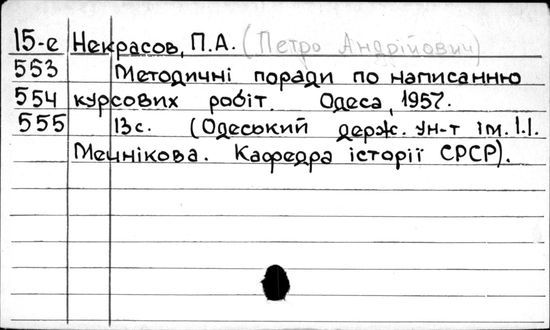 15-е Некрасов, П.А. (Петро Андрійович)
553 Методичні поради по написанню
554 курсових робіт. Одеса, 1957.
555 13с. (Одеський держ. ун-т ім. І.І.
Мечнікова. Кафедра історії СРСР).